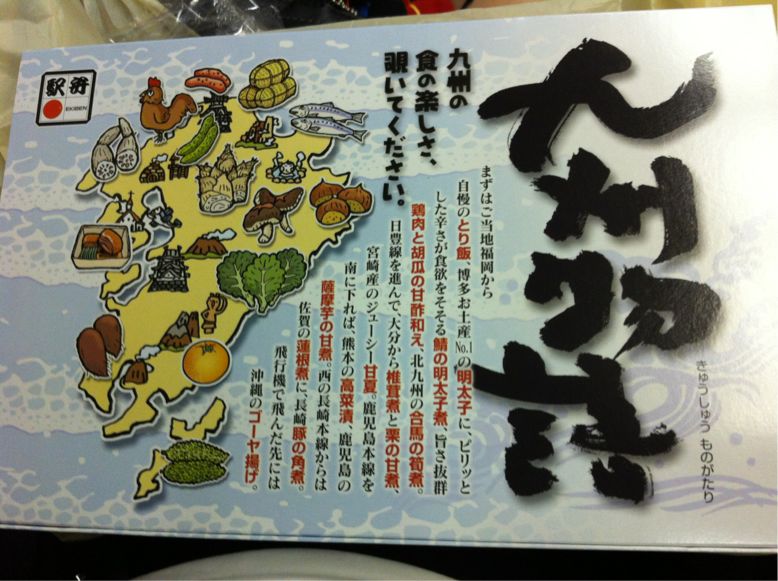 九州物語
きゅうしゅう ものがたり
九州の
食の楽しさ、
覗いてください。
まずはご当地福岡から
自慢のとり飯、博多お土産No.1の明太子に、ピリッと
した辛さが食欲をそそる鯖の明太子煮、旨さ抜群
鶏肉と胡瓜の甘酢和え、北九州の合馬の筍煮。
日豊線を進んで、大分から椎茸煮と栗の甘煮、
宮崎産のジューシー甘夏。鹿児島本線を
南に下れば、熊本の高菜漬、鹿児島の
薩摩芋の甘煮。西の長崎本線からは
佐賀の蓮根煮に、長崎豚の角煮。
飛行機で飛んだ先には
沖縄のゴーヤ揚げ。
駅弁
EKIBEN